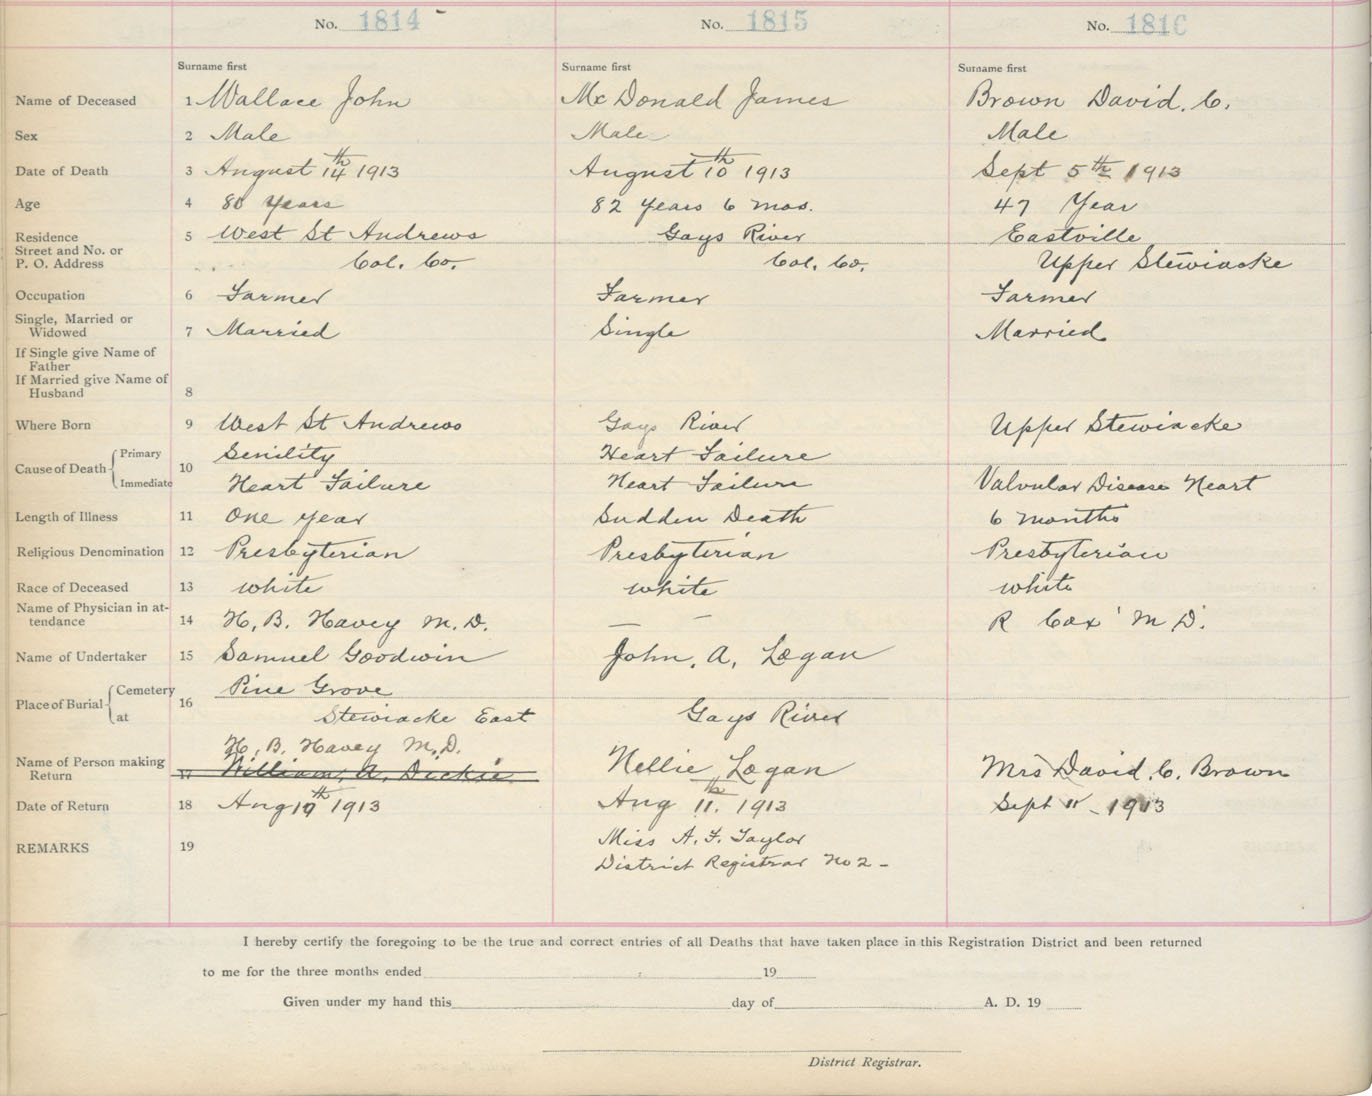 No. 1814 No. 1815 No. 1816
Surname first Surname first Surname first
Name of Deceased 1 Wallace John Mc Donald James Brown David. C.
Sex 2 Male Male Male
Date of Death 3 August 14th 1913 August 10th 1913 Sept 5th 1913
Age 4 80 Years 82 Years 6 mos. 47 Year
Residence 5 West St Andrews Gays River Eastville
Street and No. or
P. O. Address Col. Co. Col. Co. Upper Stewiacke
Occupation 6 Farmer Farmer Farmer
Single, Married or
Widowed 7 Married Single Married
If Single give Name of
Father
If Married give Name of
Husband 8
Where Born 9 West St Andrews Gays River Upper Stewiacke
Primary Senility Heart Failure
Cause of Death 10
Immediate Heart Failure Heart Failure Valvular Disease Heart
Length of Illness 11 One year Sudden Death 6 months
Religious Denomination 12 Presbyterian Presbyterian Presbyterian
Race of Deceased 13 white white white
Name of Physician in at-
tendance 14 H. B. Havey M. D. — — R Cox M. D.
Name of Undertaker 15 Samuel Goodwin John. A. Logan
Cemetery Pine Grove
Place of Burial 16
at Stewiacke East Gays River
H. B. Havey M. D.
Name of Person making
Return 17 William. A. Dickie Nellie Logan Mrs David. C. Brown
Date of Return 18 Aug 19th 1913 Aug 11th. 1913 Sept 11 - 1913
REMARKS 19 Miss A. F. Taylor
District Registrar No 2 -
I hereby certify the foregoing to be the true and correct entries of all Deaths that have taken place in this Registration District and been returned
to me for the three months ended 19
Given under my hand this day of A. D. 19
District Registrar.